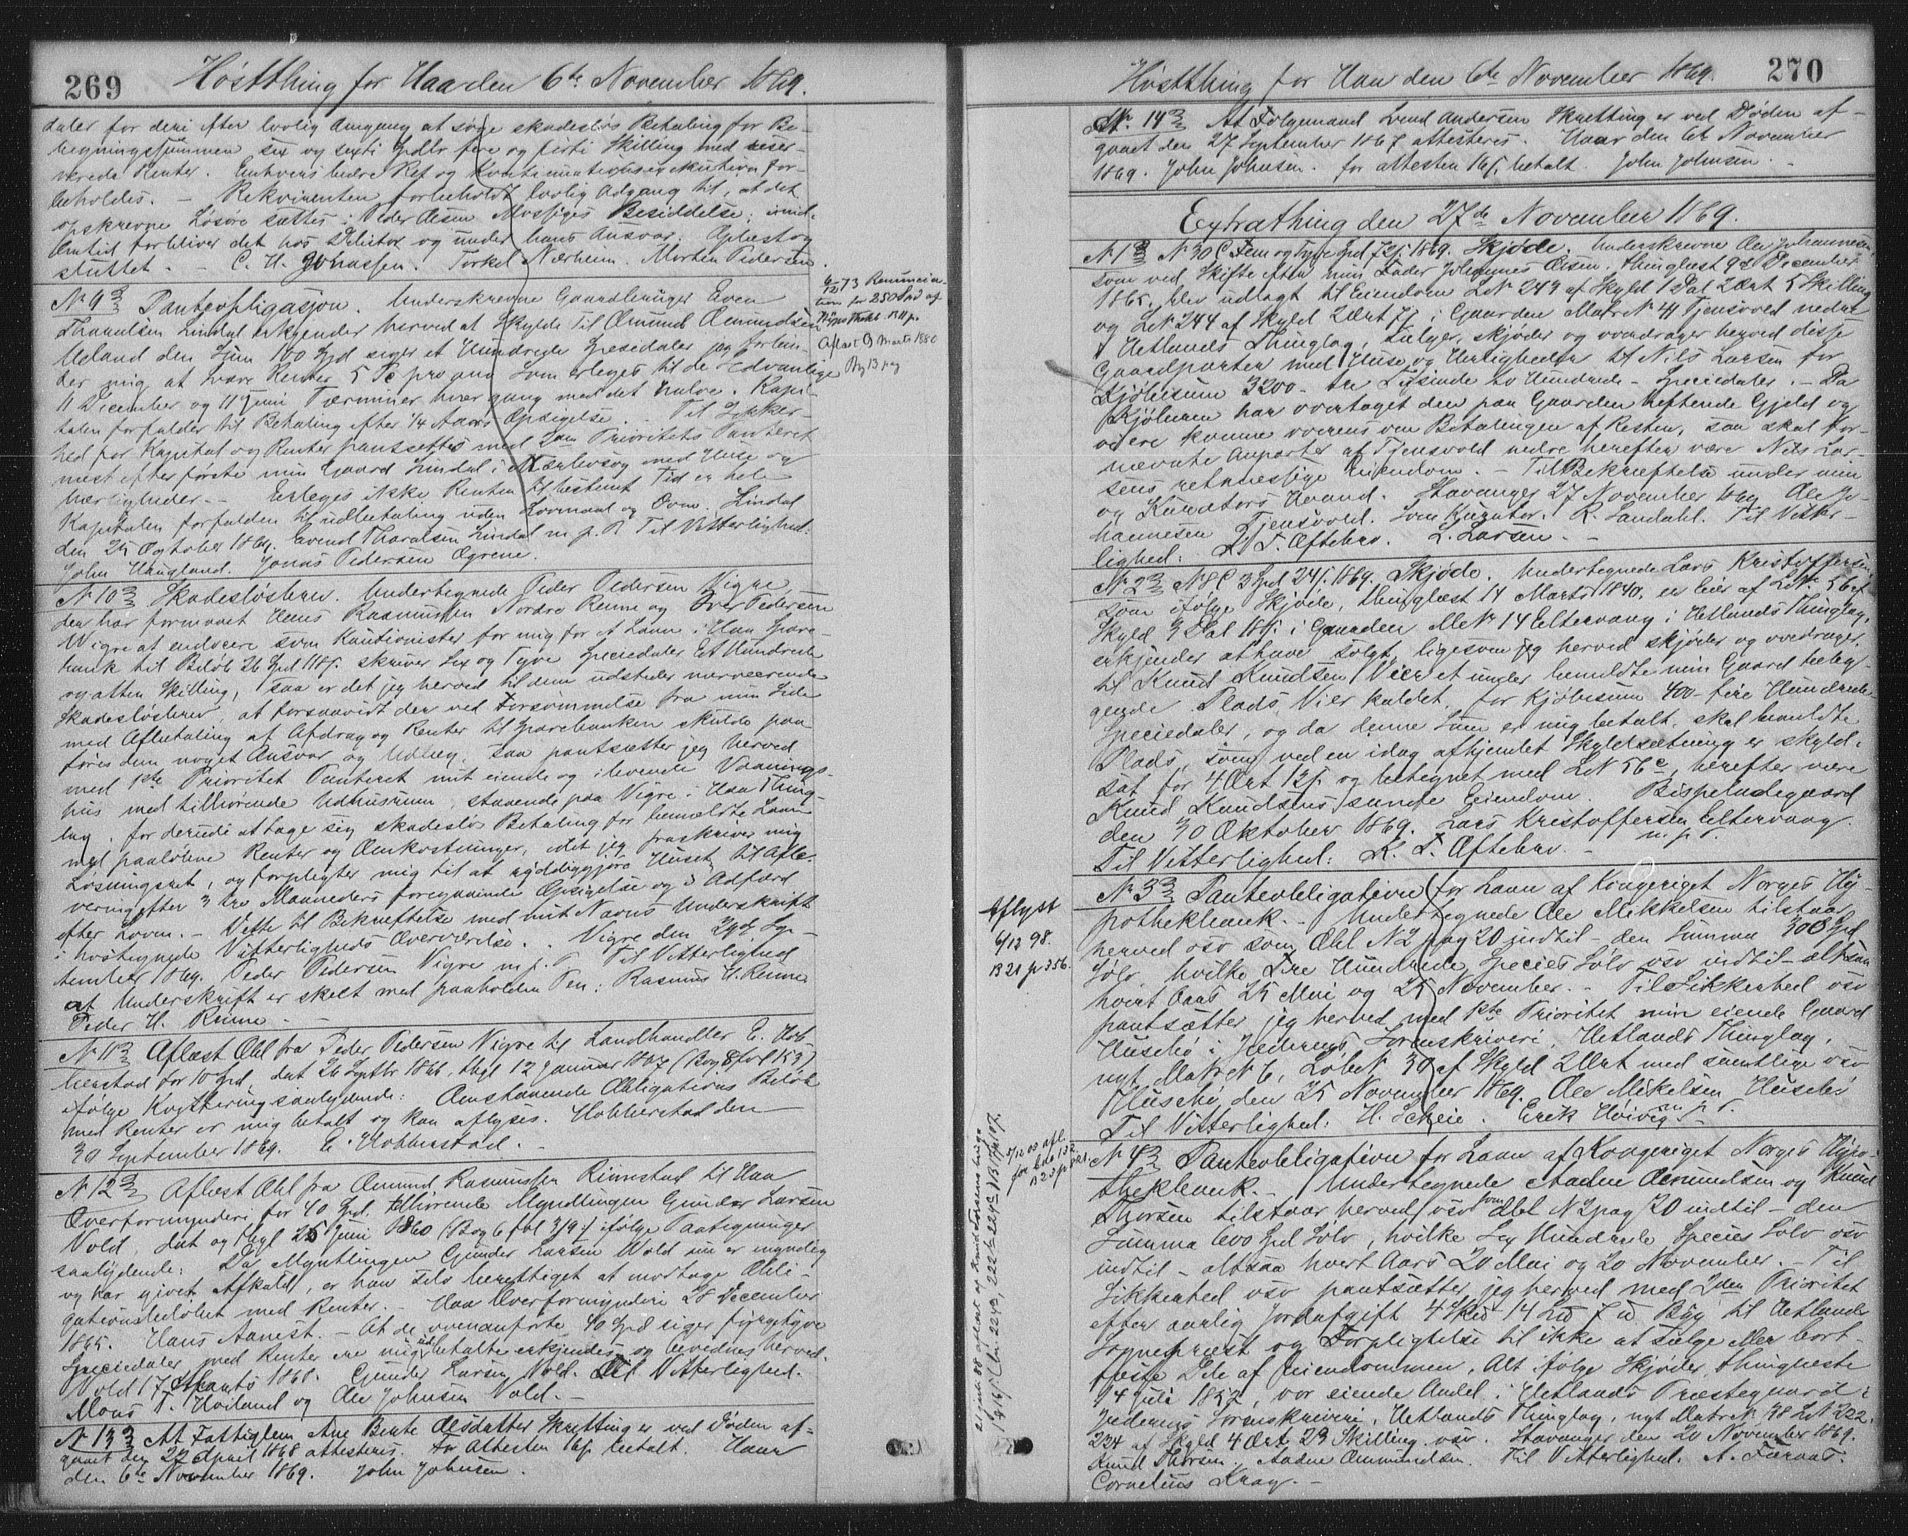 269 Høstthing for Haa den 6te November 1869.
daler for deri efter lovlig Omgang at søge skadesløs Betaling for Be-
tegningssummen sex og sexti Spdlr fire og förti Skilling med reser-
verede Renter. Enhvers bedre Ret og Kontinuationsexekution for-
beholdes. - Rekvirenten forbeholdt lovlig Adgang til, at det
opskrevne Løsøre sættes i Peder Olsen Mosiges Besiddelse; imid-
lertid forbliver det hos Debitor og under hans Ansvar. Oplæst og
sluttet. - C. H. Johnssen. Torkel Nærheim. Morten Pedersen.
No 9 Panteobligasjon. Underskrevne Gaardbruger Even
Thoralsen Lindal erkgender herved at skylde til Omund Omundsen
Udland den Sum 100 Spd siger et Hundrede Spesidaler jeg forbin-
der mig at svare Renter 5 Pc pro ano som erleges til de sedvanlige
11 December og 11 Juni Terminer hver gang med det halve. Kapi-
talen forfalder til Betaling efter 1/4 Aars Opsigelse. Til Sikker-
hed for Kapital og Renter pantsettes med 2den Prioritets Panteret
nest efter første min Gaard Lindal i med Huse og
herligheder. - Erleges ikke Renten til bestemt Tid er hele
Kapitalen forfalden til udbetaling uden Lovmaal og Dom. Lindal
den 25 Ogtober 1869. Evend Thoralsen Lindal m. p. P. Til Vitterlighed:
John Haugland. Jonas Pedersen Ogrene.
6/12 73 Renuncia-
tion for 250 Spd af
Hypothekb. B 11 p.
Aflæst 9 Marts 1880
Bog 13 pag
No 10 Skadesløsbrev. Undertegnede Peder Pedersen Vigre
der har formaaet Hans Rasmussen Nordre Renne og Iver Pedersen
Wigre at indvære som Kautionister for mig for et Laan i Haa Spare-
bank til Beløb 26 Spd 118 s. skriver Sex og Tyve Speciedaler Et Hundrede
og atten Skilling, saa er det jeg herved til dem udsteder nærværende
Skadesløsbrev, at forsaavidt der ved Forsømmelse fra min Side
med Afbetaling af Afdrag og Renter til Sparebanken skulde paa-
føres dem noget Ansvar og Udlæg, saa pantsætter jeg herved
med 1ste Prioritet Panteret mit eiende og iboende Vaanings-
hus med tilhørende Udhusrum, staaende paa Vigre i Haa Thing-
lag, for derudi at tage sig skadesløs Betaling for bemeldte Laan
med paaløbne Renter og Omkostninger, idet jeg fraskriver mig
Løsningsret, og forpligter mig til at ryddiggjøre Huset til Afle-
vering efter 3 tre Maaneders foregaaende Opsigelse og i Adfærd
efter Loven. - Dette til Bekræftelse med mit Navns Underskrift
i hostegnede Vitterligheds Overværelse. Vigre den 29de Sep-
tember 1869. Peder Pedersen Vigre m. p. P. Til Vitterlighed
at Underskrift er skeet med paaholden Pen: Rasmus H. Renne
Peder H. Renne. -
No 11 Aflæst Obl fra Peder Pedersen Vigre til Landhandler E. Hob-
berstad for 10 Spd, dat 26 Septbr 1866, thgl 12 Januar 1867 (Bog 8 fol 153)
ifølge Kvittering saalydende: Omstaaende Obligations Beløb
med Renter er mig betalt og kan aflyses. Hobberstad den
30 September 1869. E Hobberstad. -
No 12 Aflæst Obl fra Omund Rasmussen Rimestad til Haa
Overformynderi for 40 Spd. tilhørende Myndlingen Gunder Larsen
Vold, dat og thgl 25 Juni 1860 (Bog 6 fol 319) ifølge Paategninger
saalydende: Da Myndlingen Gunder Larsen Wold nu er myndig
og har givet Afkald, er han selv berettiget at modtage Obli-
gationsbeløbet med Renter. - Haa Overformynderi 28 December
1865. Hans Aanest. - At de ovenanførte 40 Spd siger fyrgetyve
Speciedaler med Renter ere mig udbetalte erkjendes og bevidnes herved.
Vold 17 Marts 1868. Gunder Larsen Vold. Til Vitterlighed.
Mons T. Høiland og Ole Johnsen Vold. -
No 13 At Fattiglem Ane Bente Olsdatter Skretting er ved Døden af-
gaaet den 27 April 1868 attesteres. For Attesten 16 s. betalt. Haar
den 6te November 1869. John Johnsen.
Høstthing for Haa den 6te November 1869. 270
No. 14 At Følgemand Svend Andersen Skretting er ved Døden af-
gaaet den 27 September 1867 attesteres. Haar den 6te November
1869. John Johnsen. for attesten 16 s. betalt. John Johnsen. -
Extrathing den 27de November 1869.
No 1 No 30 C Fem og Tyve Spd 72 s. 1869. Skjøde. Underskrevne Ole Johannesen,
som ved Skifte efter min Fader Johannes Olsen, thinglæst 9de December
1865, blev udlagt til Eiendom LNo 243 af Skyld 1 Dal 2 Ort 5 Skilling
og LNo 244 af Skyld 2 Ort 7 s. i Gaarden Matr No 41 Tjensvold nedre
i Hetlands Thinglag, sælger, skjøder og overdrager herved disse
Gaardparter med Huse og Herligheder til Nils Larsen for
Kjøbesum 3200 - tre Tusinde to Hundrede - Speciedaler. - Da
Kjøberen har overtaget den paa Gaarden heftende Gjeld og
videre komme overens om Betalingen af Resten, saa skal for-
nævnte Anparter af Tjensvold nedre herefter være Nils Lar-
sens retmæssige Eiendom. - Til Bekræftelse under min
og Kurators Haand. Stavanger 27 November 1869. Ole Jo-
hannesen Tjensvold. Som Kurator: R. Sandahl. Til Vitter-
lighed: K. T. Oftebro. L. Larsen. -
No 2 No 8 C 3 Spd 24 s. 1869. Skjøde. Undertegnede Lars Kristoffersen
som ifølge Skjøde, thinglæst 14 Marts 1840, er Eier af LNo 56 af
Skyld 3 Dal 18 s. i Gaarden M No 14 Eltervaag i Hetlands Thinglag,
erkjender at have solgt, ligesom jeg herved skjøder og overdrager
til Knud Knudsen Vier et under bemeldte min Gaard beleg-
gende Plads, Vier kaldet, for Kjøbesum 400 - fire Hundrede -
Speciedaler, og da denne Sum er mig betalt, skal bemeldte
Plads, som ved en idag afhjemlet Skyldsætning er skyld-
sat for 4 Ort 12 s. og betegnet med LNo 56c, herefter være
Knud Knudsens sande Eiendom. Bispeladegaard
den 30 Oktober 1869. Lars Kristoffersen Eltervaag.
m. p. P.
Til Vitterlighed: K. T. Oftebro. -
Aflyst
6/12 98.
B 21 p 356.
No 3 Panteobligation for Laan af Kongeriget Norges Hy-
pothekbank. - Undertegnede Ole Mikkelsen tilstaar
herved osv som Obl No 2 pag 20 indtil - den Summa 300 Spd
Sølv, hvilke Tre Hundrede Species Sølv osv indtil - altsaa
hvert Aars 25 Mai og 25 November. - Til Sikkerhed osv
pantsætter jeg herved med 1ste Prioritet min eiende Gaard
Husebø i Jæderens Sorenskriveri, Hetlands Thinglag,
nyt Matr No 6, Løbe No 30 af Skyld 2 Ort med samtlige osv
Husebø den 25 November 1869. Ole Mikelsen Husebø
m. p. P.
Til Vitterlighed: H. Scheie. Erik Høivig.
No 4 Panteobligation for Laan af Kongeriget Norges Hypo-
thekbank. - Undertegnede Aadne Omundsen og Knud
Thorsen tilstaar herved osv som Obl No 2 pag 20 indtil - den
Summa 600 Spd Sølv, hvilke Sex Hundrede Species Sølv osv
indtil - altsaa hvert Aars 20 Mai og 20 November. - Til
Sikkerhed osv pantsætter jeg herved med 2den Prioritet
efter aarlig Jordafgift 4 Skpd 14 Lpd 7 Byg til Hetlands
Sognepræst og Forpligtelse til ikke at sælge eller bort-
fæste Dele af Eiendommen, Alt ifølge Skjøder, thinglæste
14 Juli 1857, vor eiende Andel i Hetlands Præstegaard i
Jæderens Sorenskriveri, Hetlands Thinglag, nyt Matr No 38 LNo 222,
224 af Skyld 4 Ort 23 Skilling osv. Stavanger den 20 November 1869.
Knud Thorsen. Aadne Ommundsen. Til Vitterlighed: A. Færaas.
Cornelius Krag. -